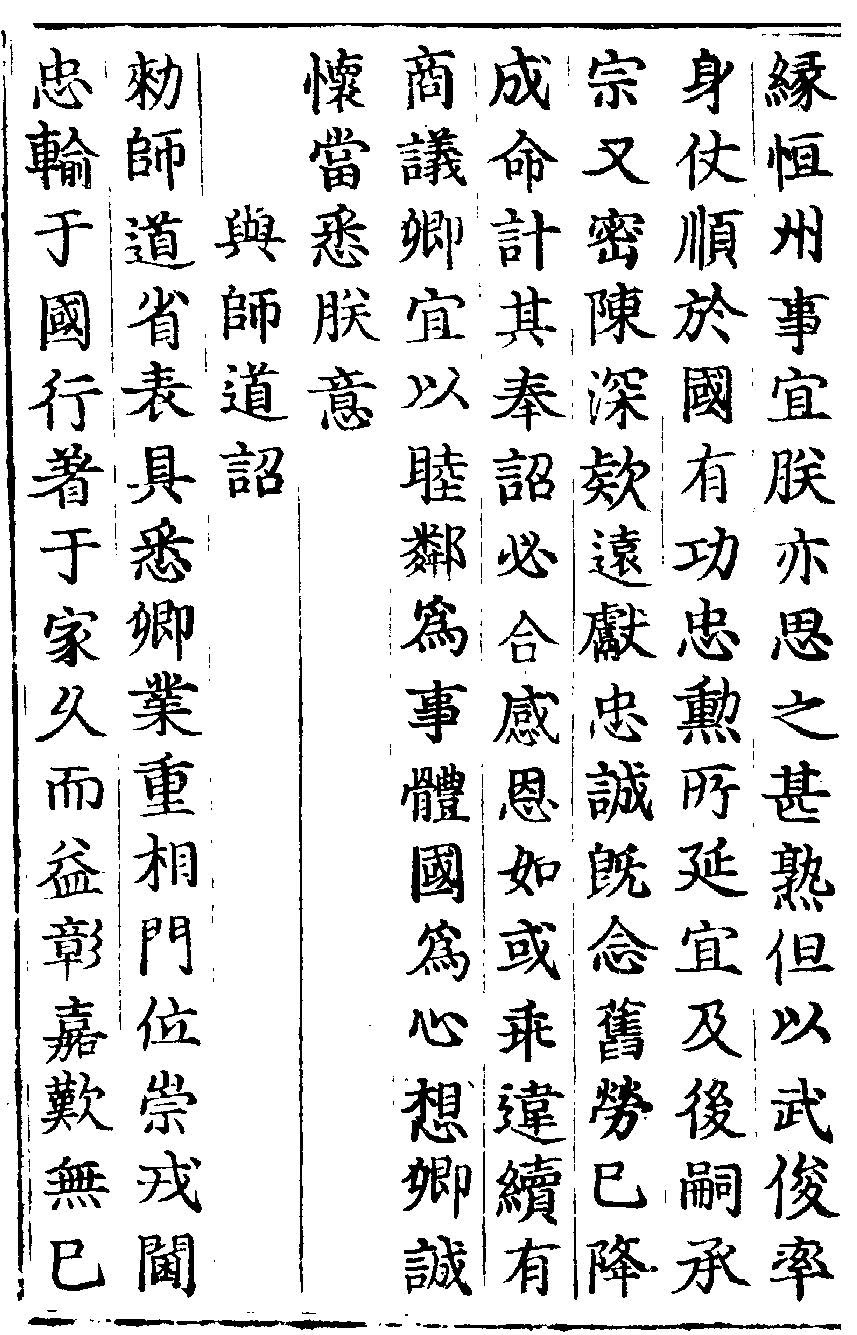 縁恒州事宜朕亦思之甚熟但以武俊率
身仗順於國有功忠勲所延宜及後嗣承
宗又密陳深欵遠獻忠誠旣念舊勞已降
成命計其奉詔必合感恩如或乖違續有
商議卿宜以睦鄰爲事體國爲心想卿誠
懷當悉朕意
與師道詔
勑師道省表具悉卿業重相門位崇戎閫
忠輸于國行著于家久而益彰嘉歎無已